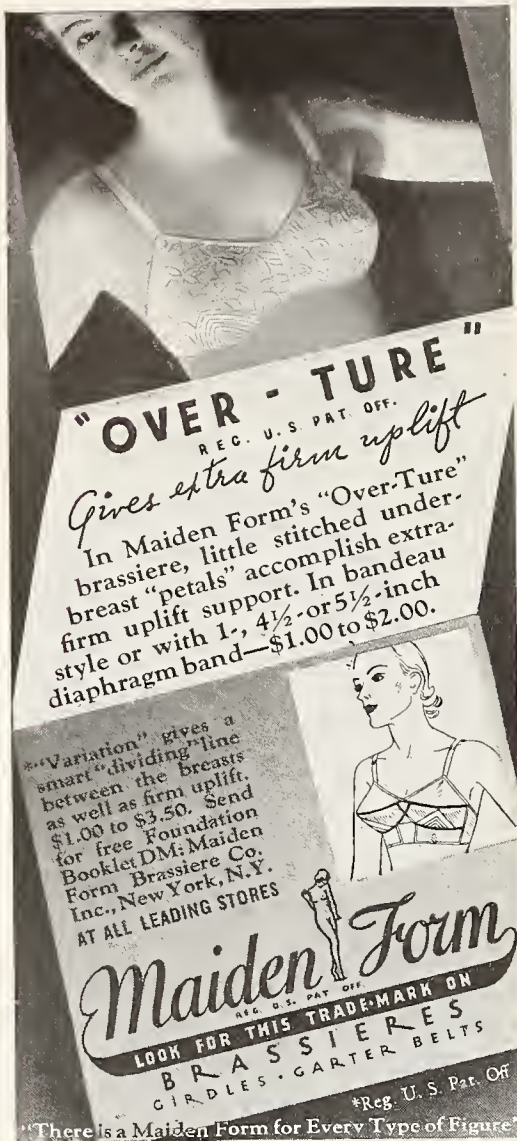 "OVER - TURE"
REG. U.S. PAT. OFF.
Gives extra firm uplift
In Maiden Form's "Over-Ture"
brassiere, little stitched under-
breast "petals" accomplish extra-
firm uplift support. In bandeau
style or with 1-, 4½-or 5½-inch
diaphragm band—$1.00 to $2.00.
*"Variation" gives a
smart "dividing" line
between the breasts
as well as firm uplift.
$1.00 to $3.50. Send
for free Foundation
Booklet DM: Maiden
Form Brassiere Co.
Inc., New York, N.Y.
AT ALL LEADING STORES
Maiden Form
REG. U.S. PAT. OFF.
LOOK FOR THIS TRADE-MARK ON
BRASSIERES
GIRDLES · GARTER BELTS
*Reg. U. S. Pat. Off
"There is a Maiden Form for Every Type of Figure"